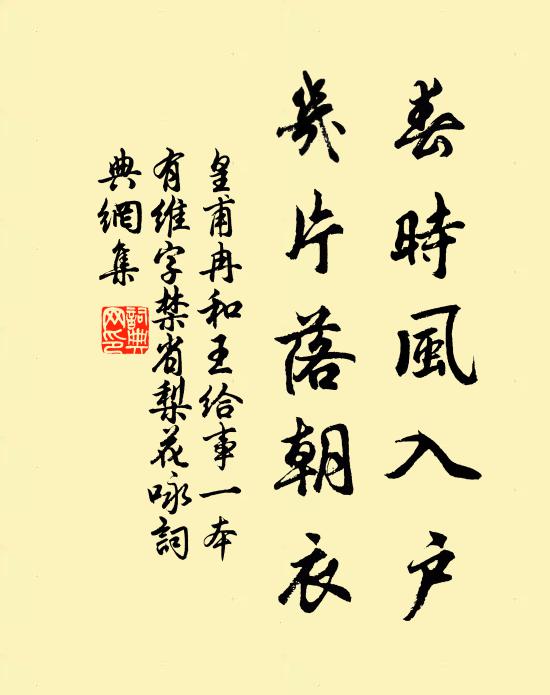 春時風入户
幾片落朝衣
皇甫冉和王給事一本
有維字禁省梨花咏詞
典網集
詞典網印